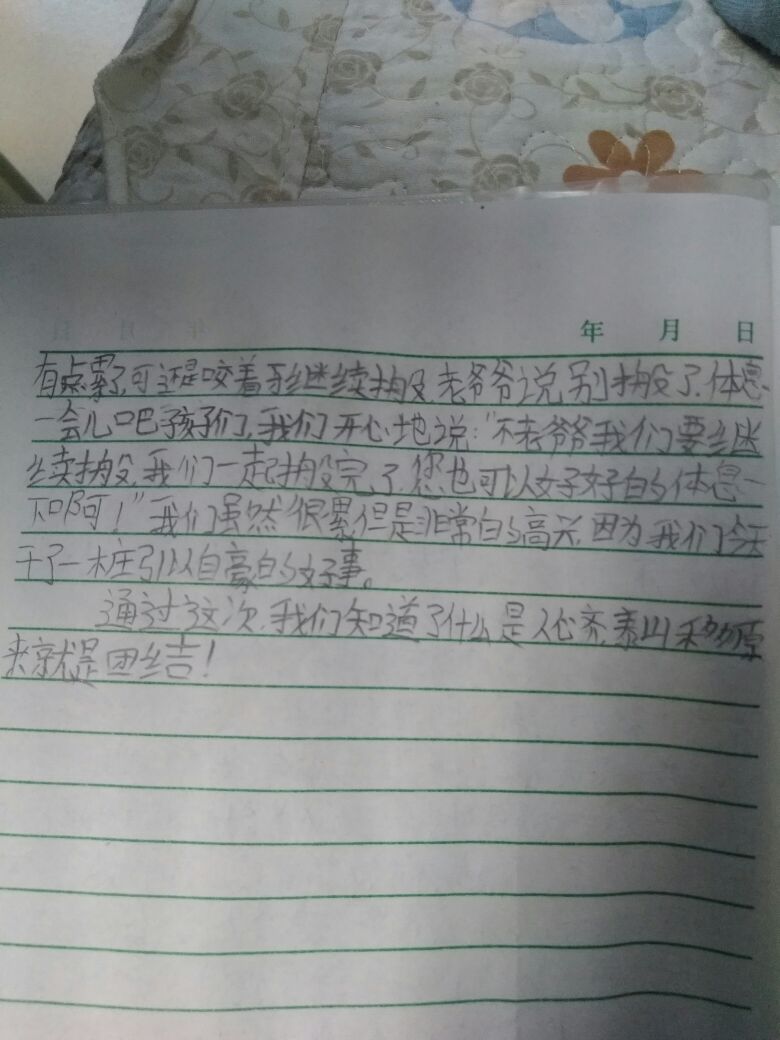 年 月 日
有点累了,可还是咬着牙继续搬,老爷爷说,别搬了.休息
一会儿吧孩子们,我们开心地说:“不老爷爷我们要继
续搬,我们一起搬完了.您也可以好好的休息一
下啊!”我们虽然很累但是非常的高兴.因为我们今天
干了一桩引以自豪的好事。
通过这次,我们知道了什么是人心齐,泰山移,原
来就是团结!